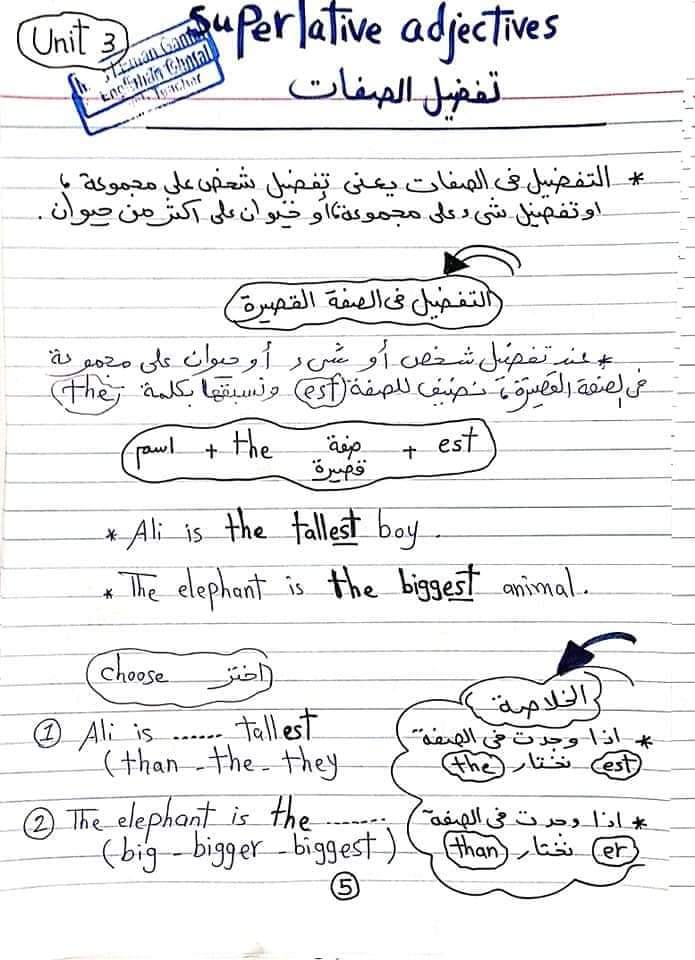 Unit 3
Superlative adjectives
تفضيل الصفات
* التفضيل فى الصفات يعنى تفضيل شخص على مجموعة ،
او تفضيل شىء على مجموعة، أو حيوان على اكثر من حيوان.
التفضيل فى الصفة القصيرة
* عند تفضيل شخص أو شىء أو حيوان على مجموعة
فى الصفة القصيرة، نضيف للصفة (est) ونسبقها بكلمة (the)
اسم + the صفة قصيرة + est
* Ali is the tallest boy.
* The elephant is the biggest animal.
Choose اختر
① Ali is ...... tallest
(than - the - they
② The elephant is the .......
(big - bigger - biggest)
الخلاصة
* اذا وجدت فى الصفة
est نختار the
* اذا وجدت فى الصفة
er نختار than
⑤